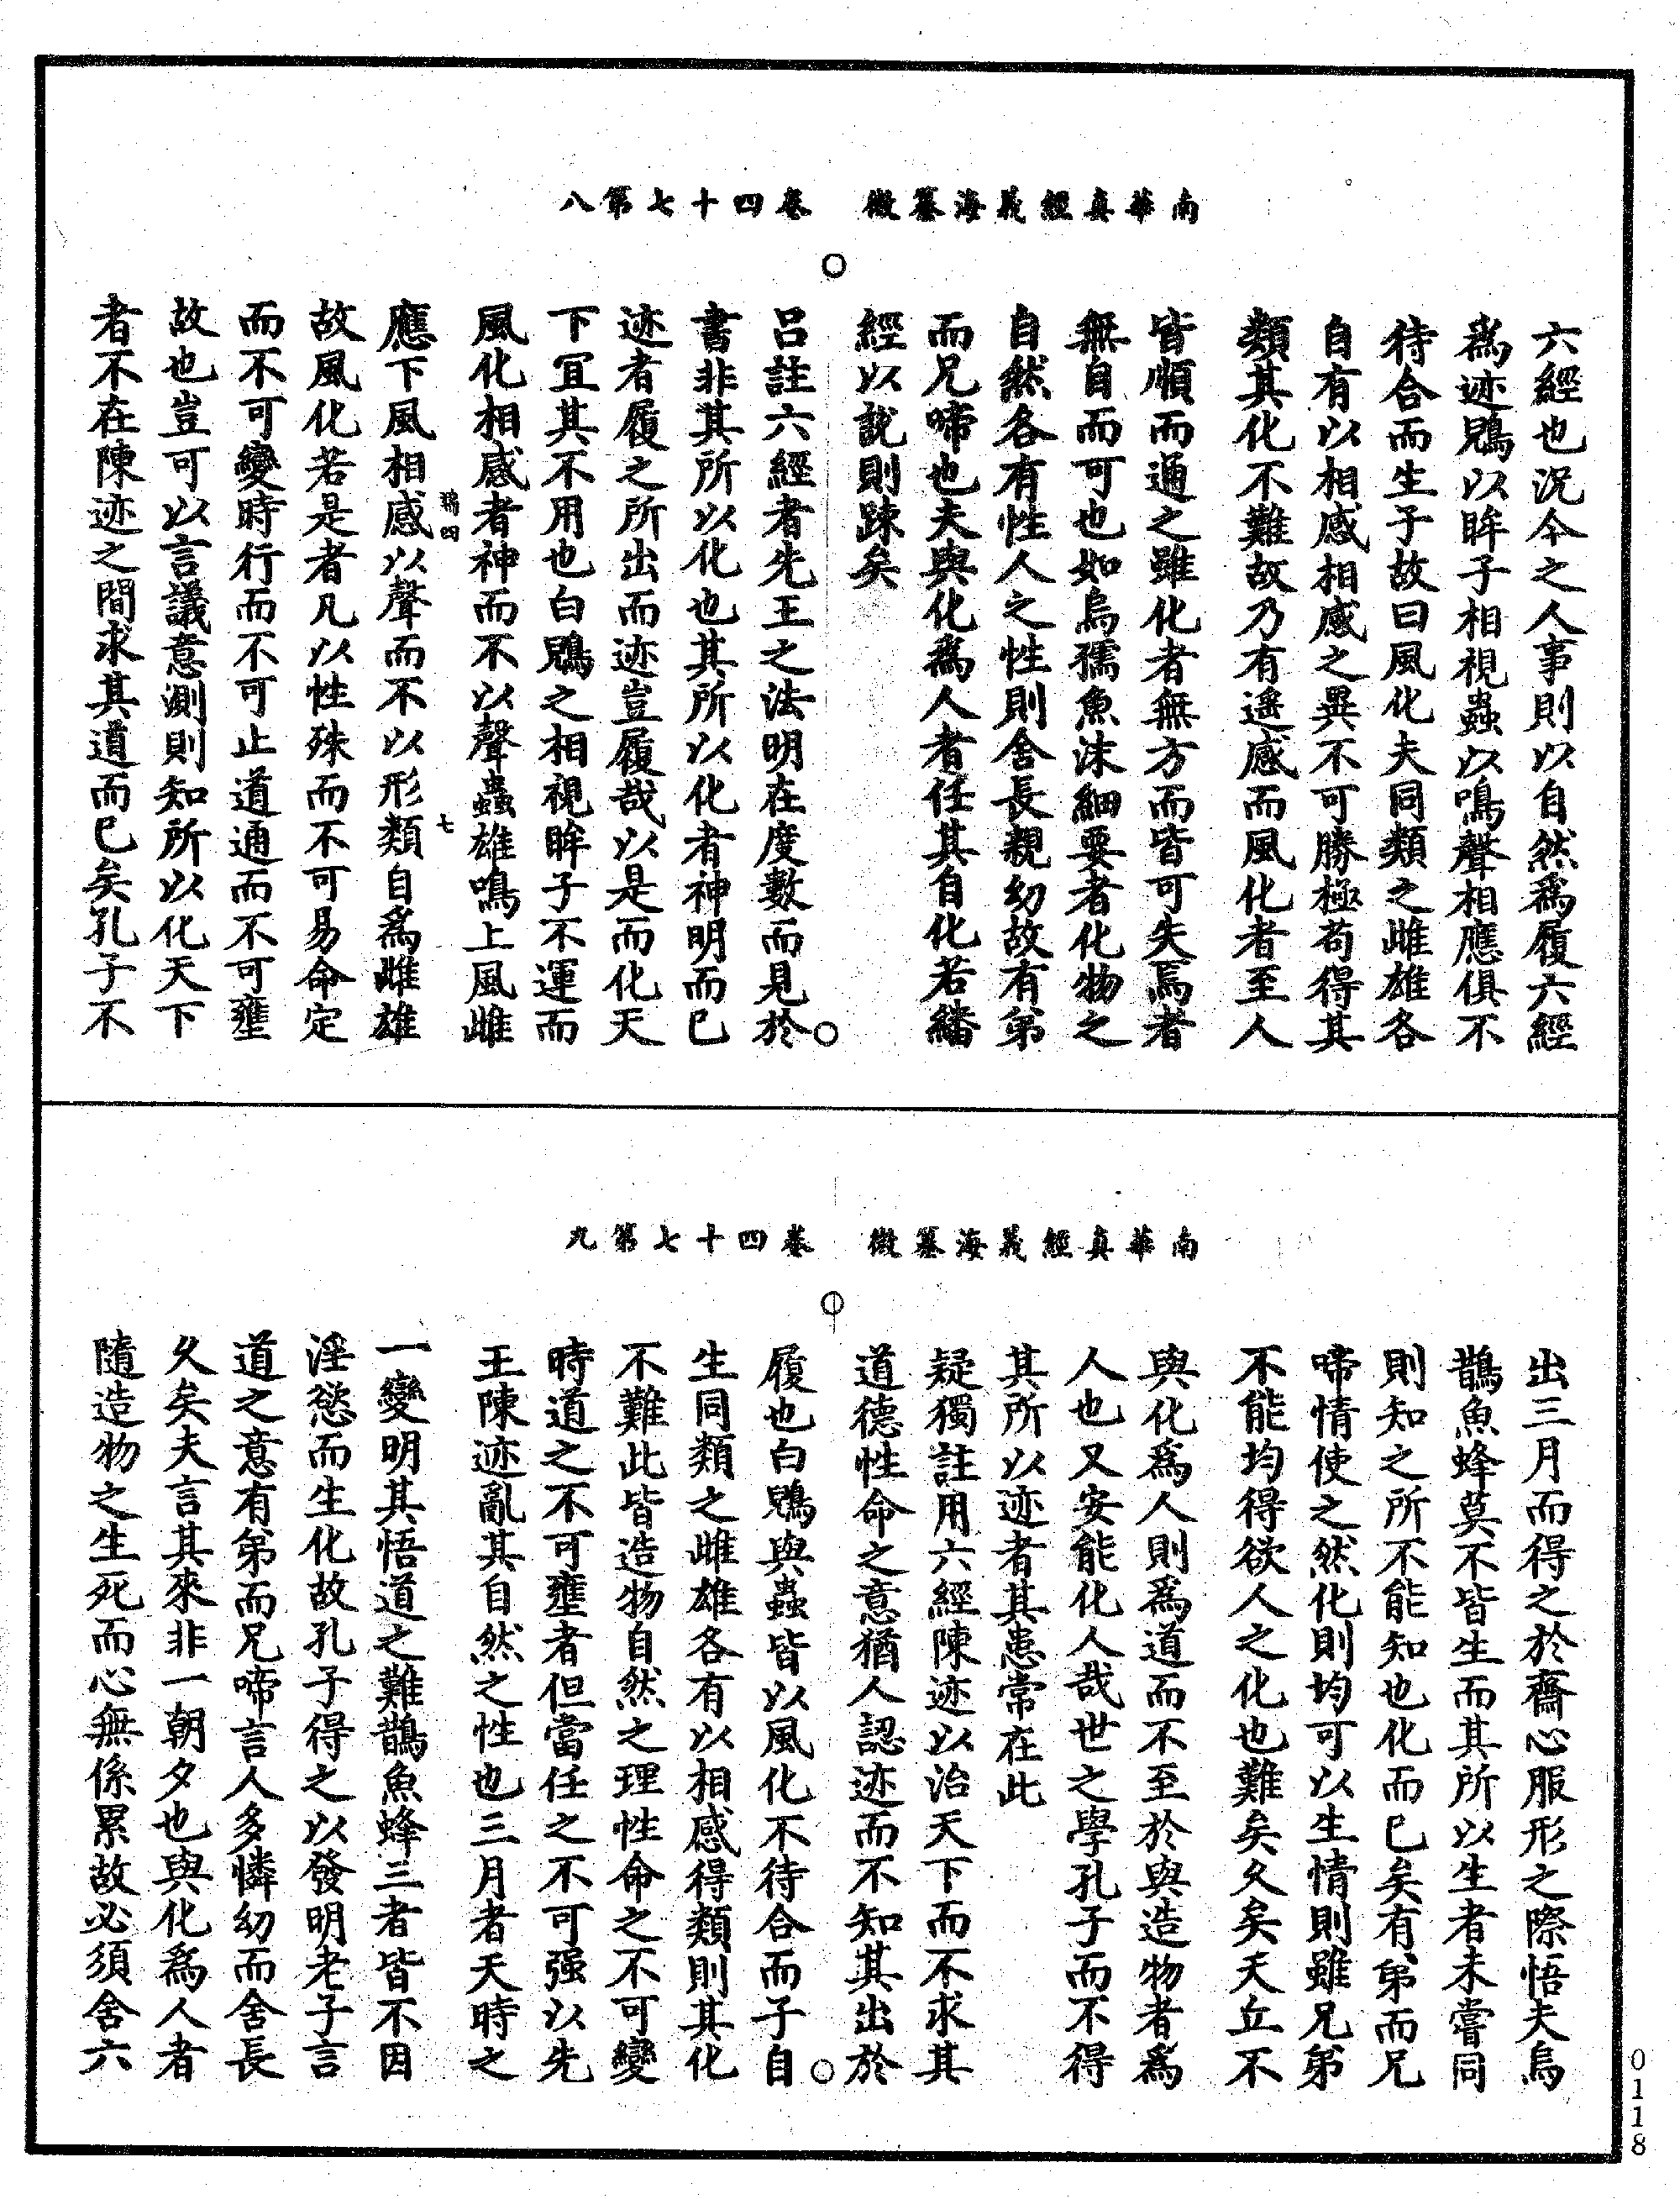 南華真經義海纂微　卷四十七第八
六經也況今之人事則以自然爲履六經
爲迹鶂以眸子相視蟲以鳴聲相應俱不
待合而生子故曰風化夫同類之雌雄各
自有以相感相感之異不可勝極苟得其
類其化不難故乃有遥感而風化者至人
皆順而通之雖化者無方而皆可失焉者
無自而可也如烏孺魚沫細要者化物之
自然各有性人之性則舍長親幼故有弟
而兄啼也夫與化爲人者任其自化若繙
經以說則踈矣
吕註六經者先王之法明在度數而見於
書非其所以化也其所以化者神明而已
迹者履之所出而迹豈履哉以是而化天
下冝其不用也白鶂之相視眸子不運而
風化相感者神而不以聲蟲雄鳴上風雌
應下風相感以聲而不以形類自爲雌雄
鵶四
七
故風化若是者凡以性殊而不可易命定
而不可變時行而不可止道通而不可壅
故也豈可以言議意測則知所以化天下
者不在陳迹之間求其道而已矣孔子不
南華真經義海纂微　卷四十七第九
出三月而得之於齋心服形之際悟夫烏
鵲魚蜂莫不皆生而其所以生者未嘗同
則知之所不能知也化而已矣有弟而兄
啼情使之然化則均可以生情則雖兄弟
不能均得欲人之化也難矣久矣夫丘不
與化爲人則爲道而不至於與造物者爲
人也又安能化人哉世之學孔子而不得
其所以迹者其患常在此
疑獨註用六經陳迹以治天下而不求其
道德性命之意猶人認迹而不知其出於
履也白鶂與蟲皆以風化不待合而子自
生同類之雌雄各有以相感得類則其化
不難此皆造物自然之理性命之不可變
時道之不可壅者但當任之不可强以先
王陳迹亂其自然之性也三月者天時之
一變明其悟道之難鵲魚蜂三者皆不因
淫慾而生化故孔子得之以發明老子言
道之意有弟而兄啼言人多憐幼而舍長
久矣夫言其來非一朝夕也與化爲人者
隨造物之生死而心無係累故必須舍六
0118